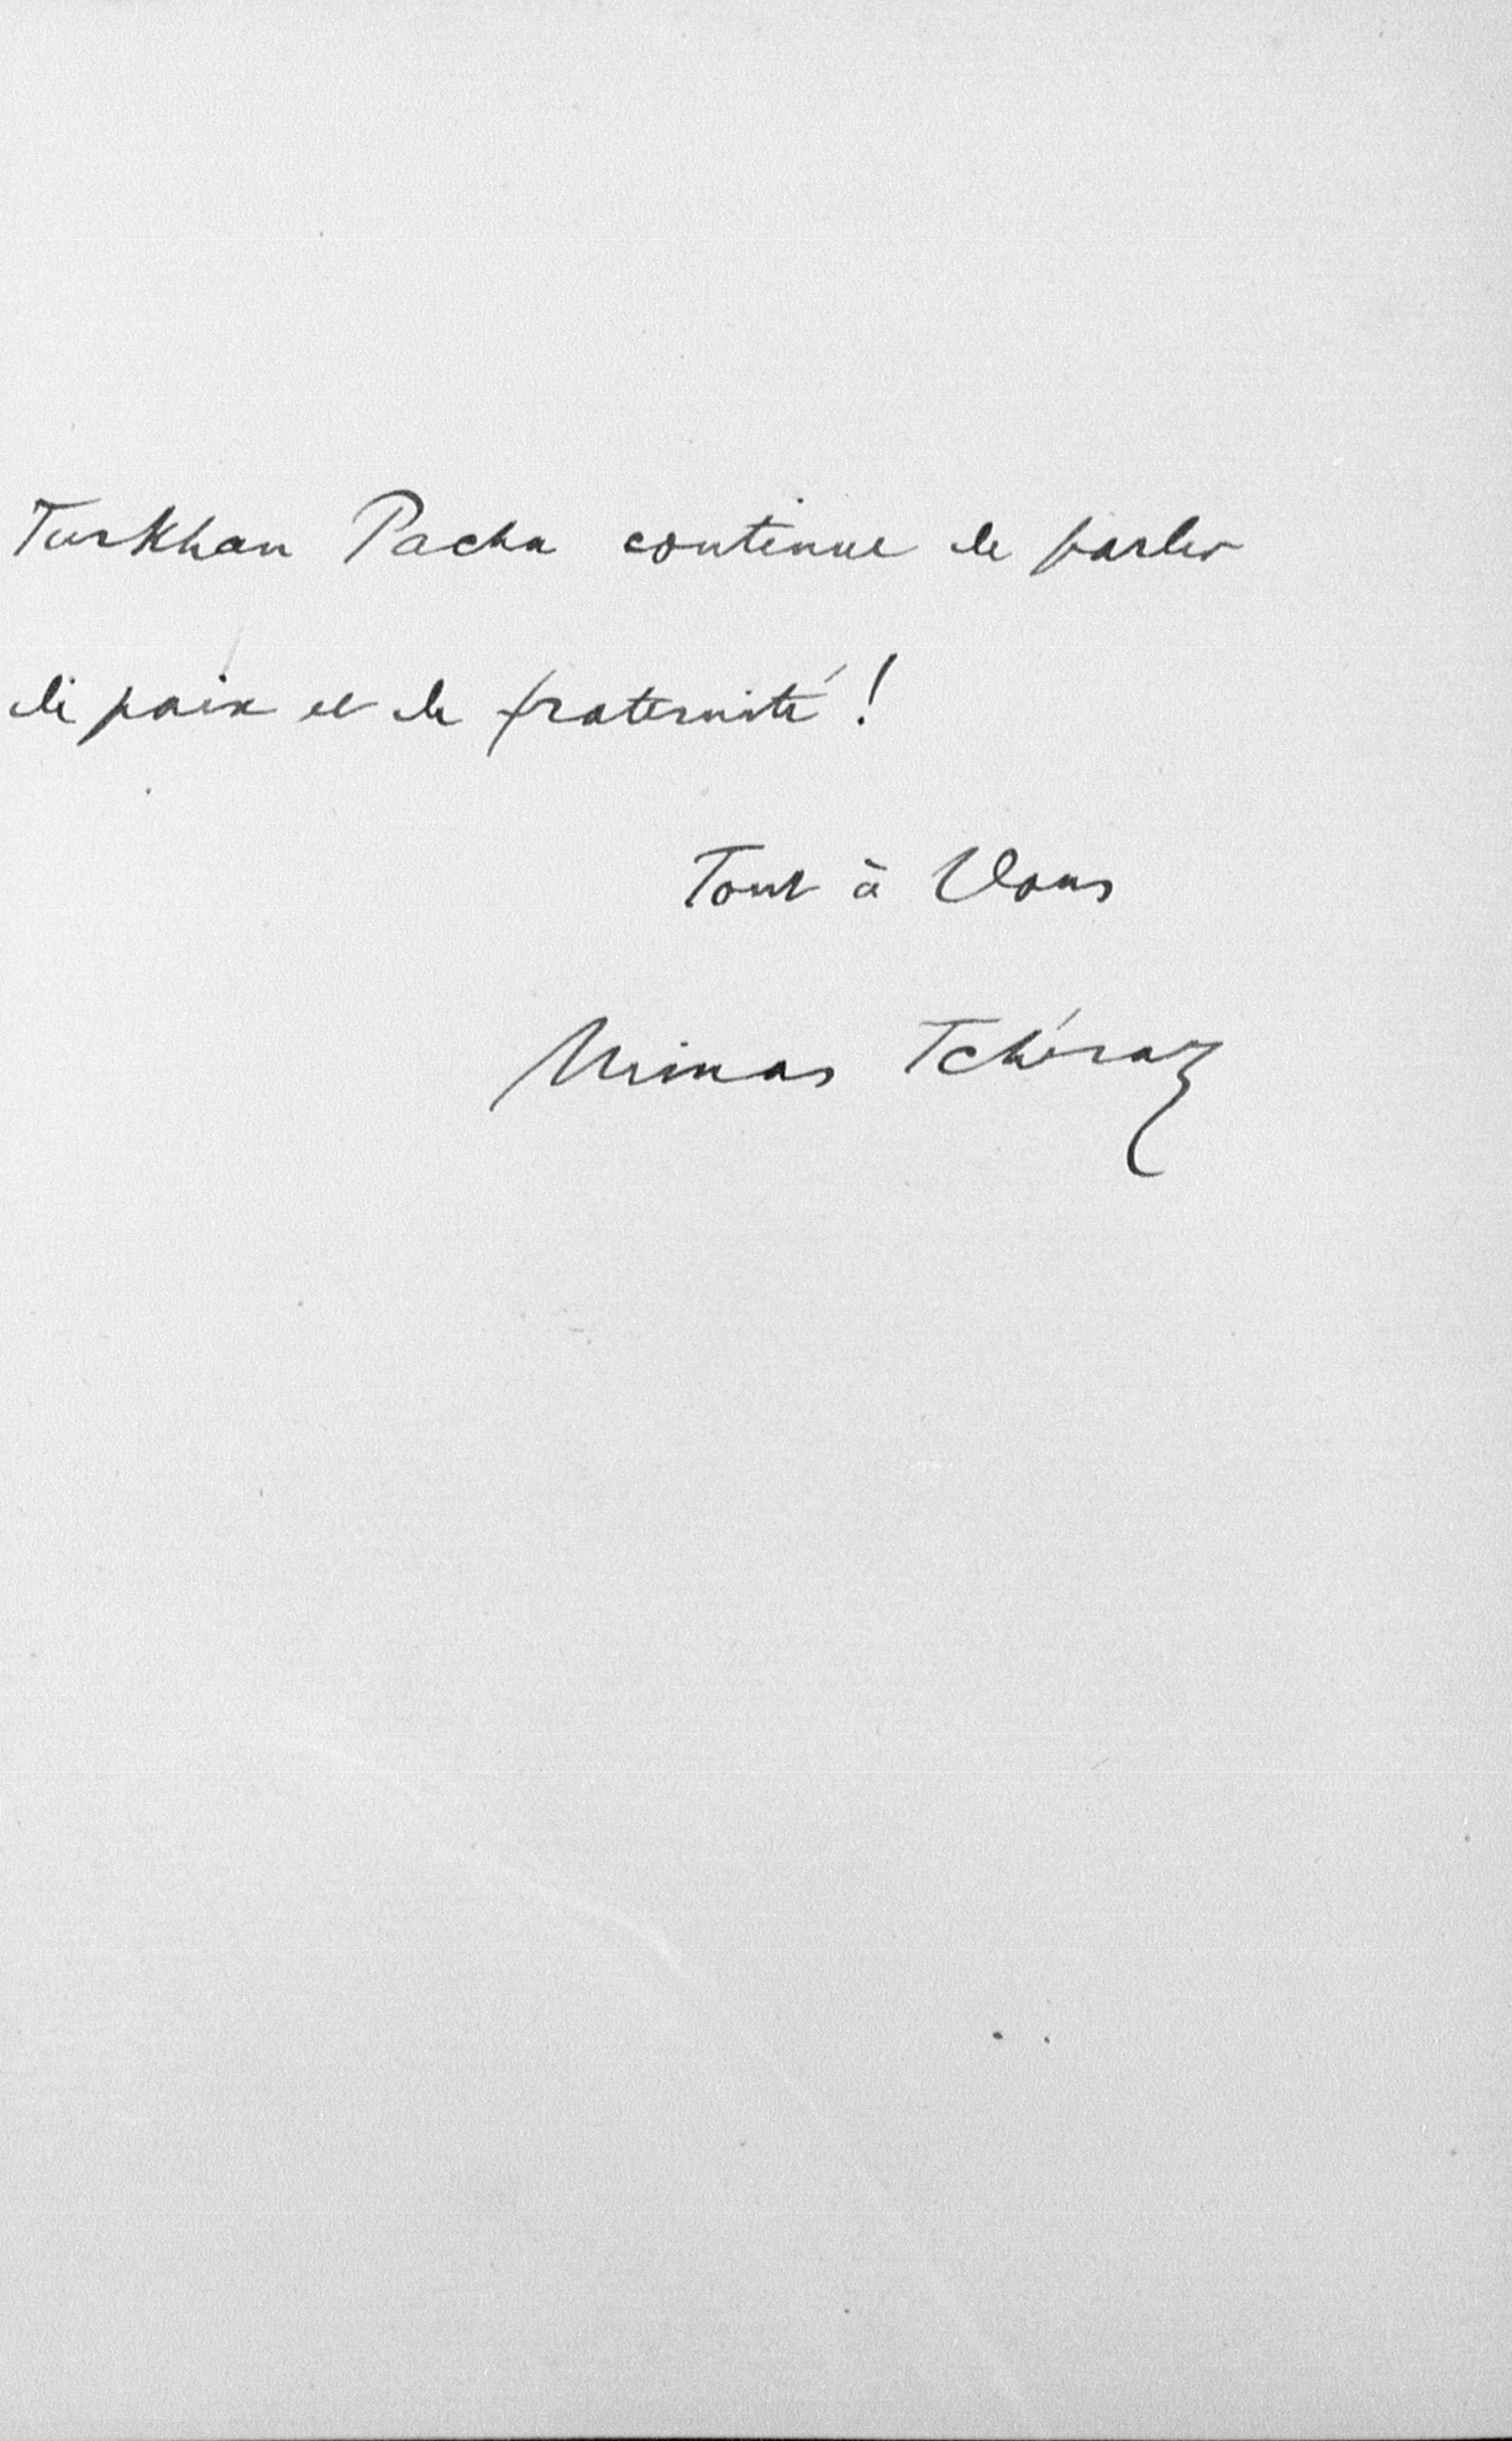 Turkhan Pacha continue de parler
de paix et de fraternité !
Tout à Vous
Minas Tchéraz